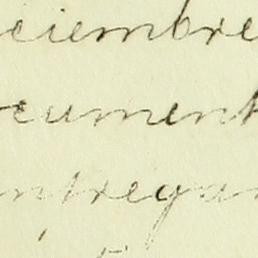 eciembre
cument
ntregar